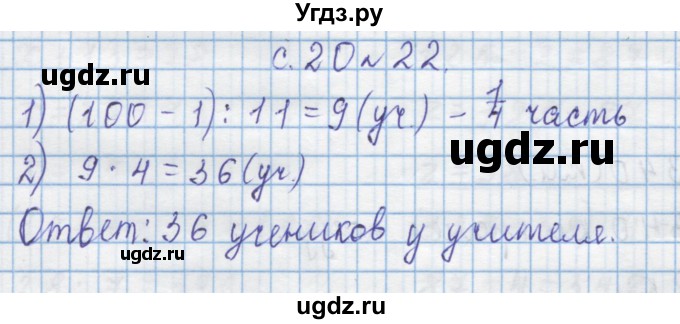 Угдз.ру
с. 20 № 22.
ugdz.ru ugdz.ru
1) (100 - 1) : 11 = 9 (уч.) - 1/4 часть
ugdz.ru
2) 9 · 4 = 36 (уч.)
Ответ: 36 учеников у учителя.
ugdz.ru ugdz.ru
ugdz.ru